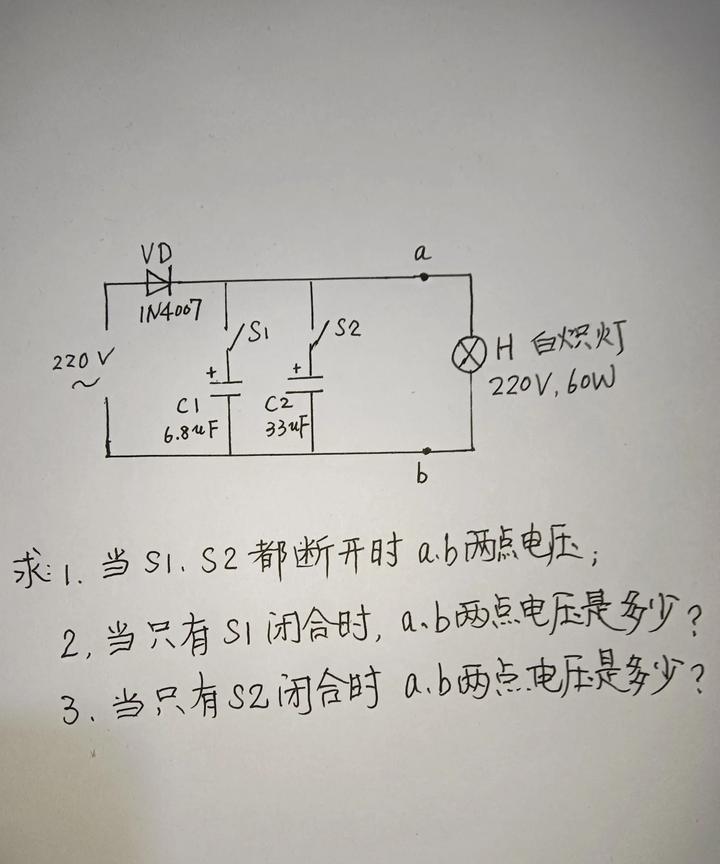 VD
1N4007
a
S1
S2
220V
~
+
+
H 白炽灯
220V, 60W
C1
6.8uF
C2
33uF
b
求: 1. 当S1. S2都断开时 a.b两点电压;
2, 当只有S1闭合时, a.b两点电压是多少?
3. 当只有S2闭合时 a.b两点电压是多少?